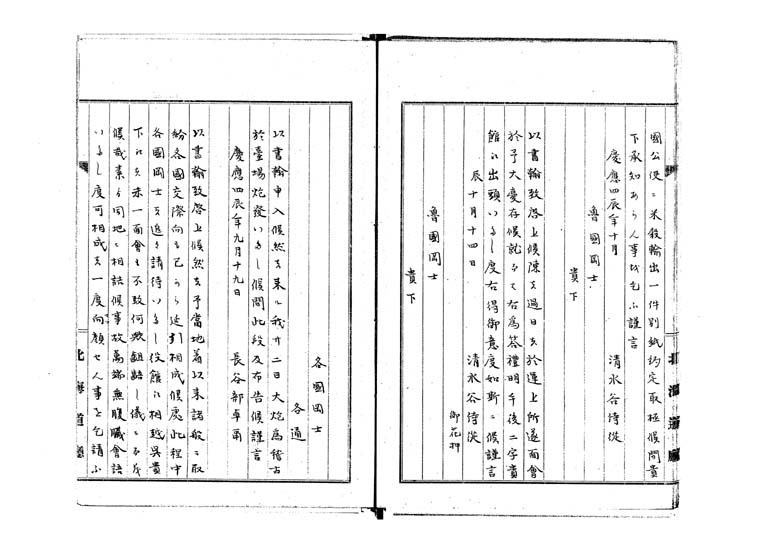 國公使ニ米穀輸出一件別紙約定取極候間貴
下承知あらん事を乞ふ謹言
慶應四辰年十月
清水谷侍従
魯國岡士
貴下
以書翰致啓上候陳者過日者於運上所遂面會
於予大慶存候就而者右為答禮明午後二字貴
館に出頭いたし度右得御意度如斯ニ候謹言
辰十月十四日
清水谷侍従
御花押
魯國岡士
貴下
各國岡士
各通
以書翰申入候然者来ル我廿二日大炮為稽古
於臺場炮發いたし候間此段及布告候謹言
慶應四辰年九月十九日
長谷部卓爾
以書翰致啓上候然者予當地着以来諸般ニ取
紛各國交際向も已から延引相成候處此程中
各國岡士を追々請待いたし役館に相越呉貴
下に者未一面會も不致何歟齟齬之儀ニ
候哉素ゟ同地ニ相詰候事故萬端無腹臓會話
いたし度可相成者一度向顔せん事を乞請ふ
北海道廳
北海道廳